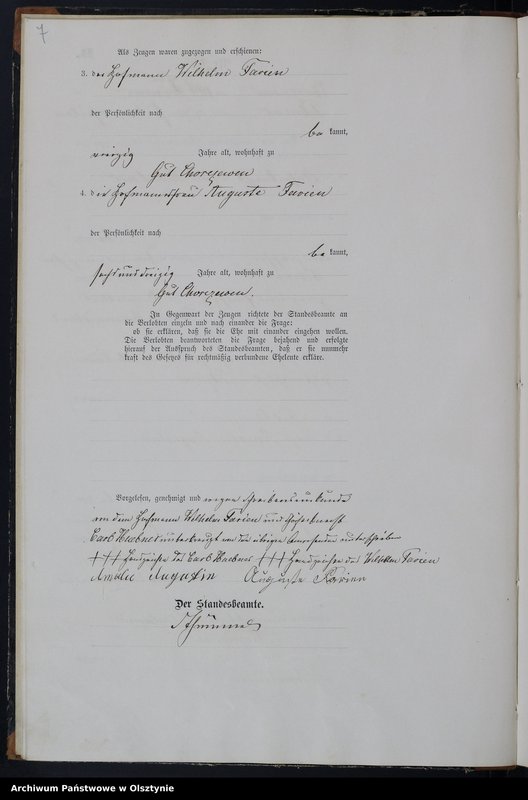 7
Als Zeugen waren zugezogen und erschienen:
3. der Hofmann Wilhelm Farien
der Persönlichkeit nach
be kannt,
vierzig Jahre alt, wohnhaft zu
Gut Chorczewen
4. die Hofmannsfrau Auguste Farien
der Persönlichkeit nach
be kannt,
sechs und dreizig Jahre alt, wohnhaft zu
Gut Chorczewen.
In Gegenwart der Zeugen richtete der Standesbeamte an
die Verlobten einzeln und nach einander die Frage:
ob sie erklären, daß sie die Ehe mit einander eingehen wollen.
Die Verlobten beantworteten die Frage bejahend und erfolgte
hierauf der Ausspruch des Standesbeamten, daß er sie nunmehr
kraft des Gesetzes für rechtmäßig verbundene Eheleute erkläre.
Vorgelesen, genehmigt und wegen Schreibensunkunde
von dem Hofmann Wilhelm Farien und
Carl Huebner unterkreuzt von den übrigen unterschrieben
+++ Handzeichen des Carl Huebner +++ Handzeichen des Wilhelm Farien
Amalie Augustin Auguste Farien
Der Standesbeamte.
Archiwum Państwowe w Olsztynie